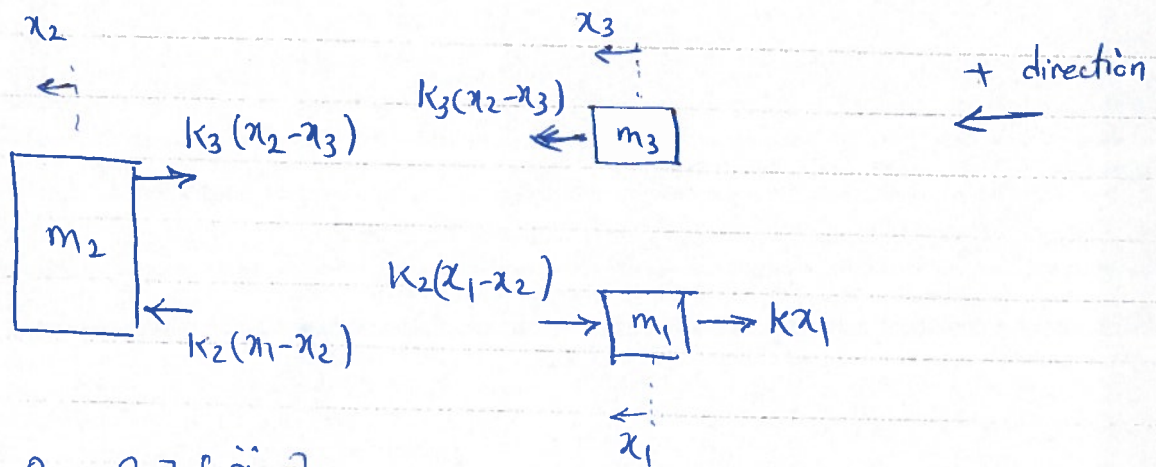 x₂
x₃
+ direction
k₃(x₂-x₃)
k₃(x₂-x₃)
m₃
m₂
k₂(x₁-x₂)
m₁
kx₁
k₂(x₁-x₂)
x₁